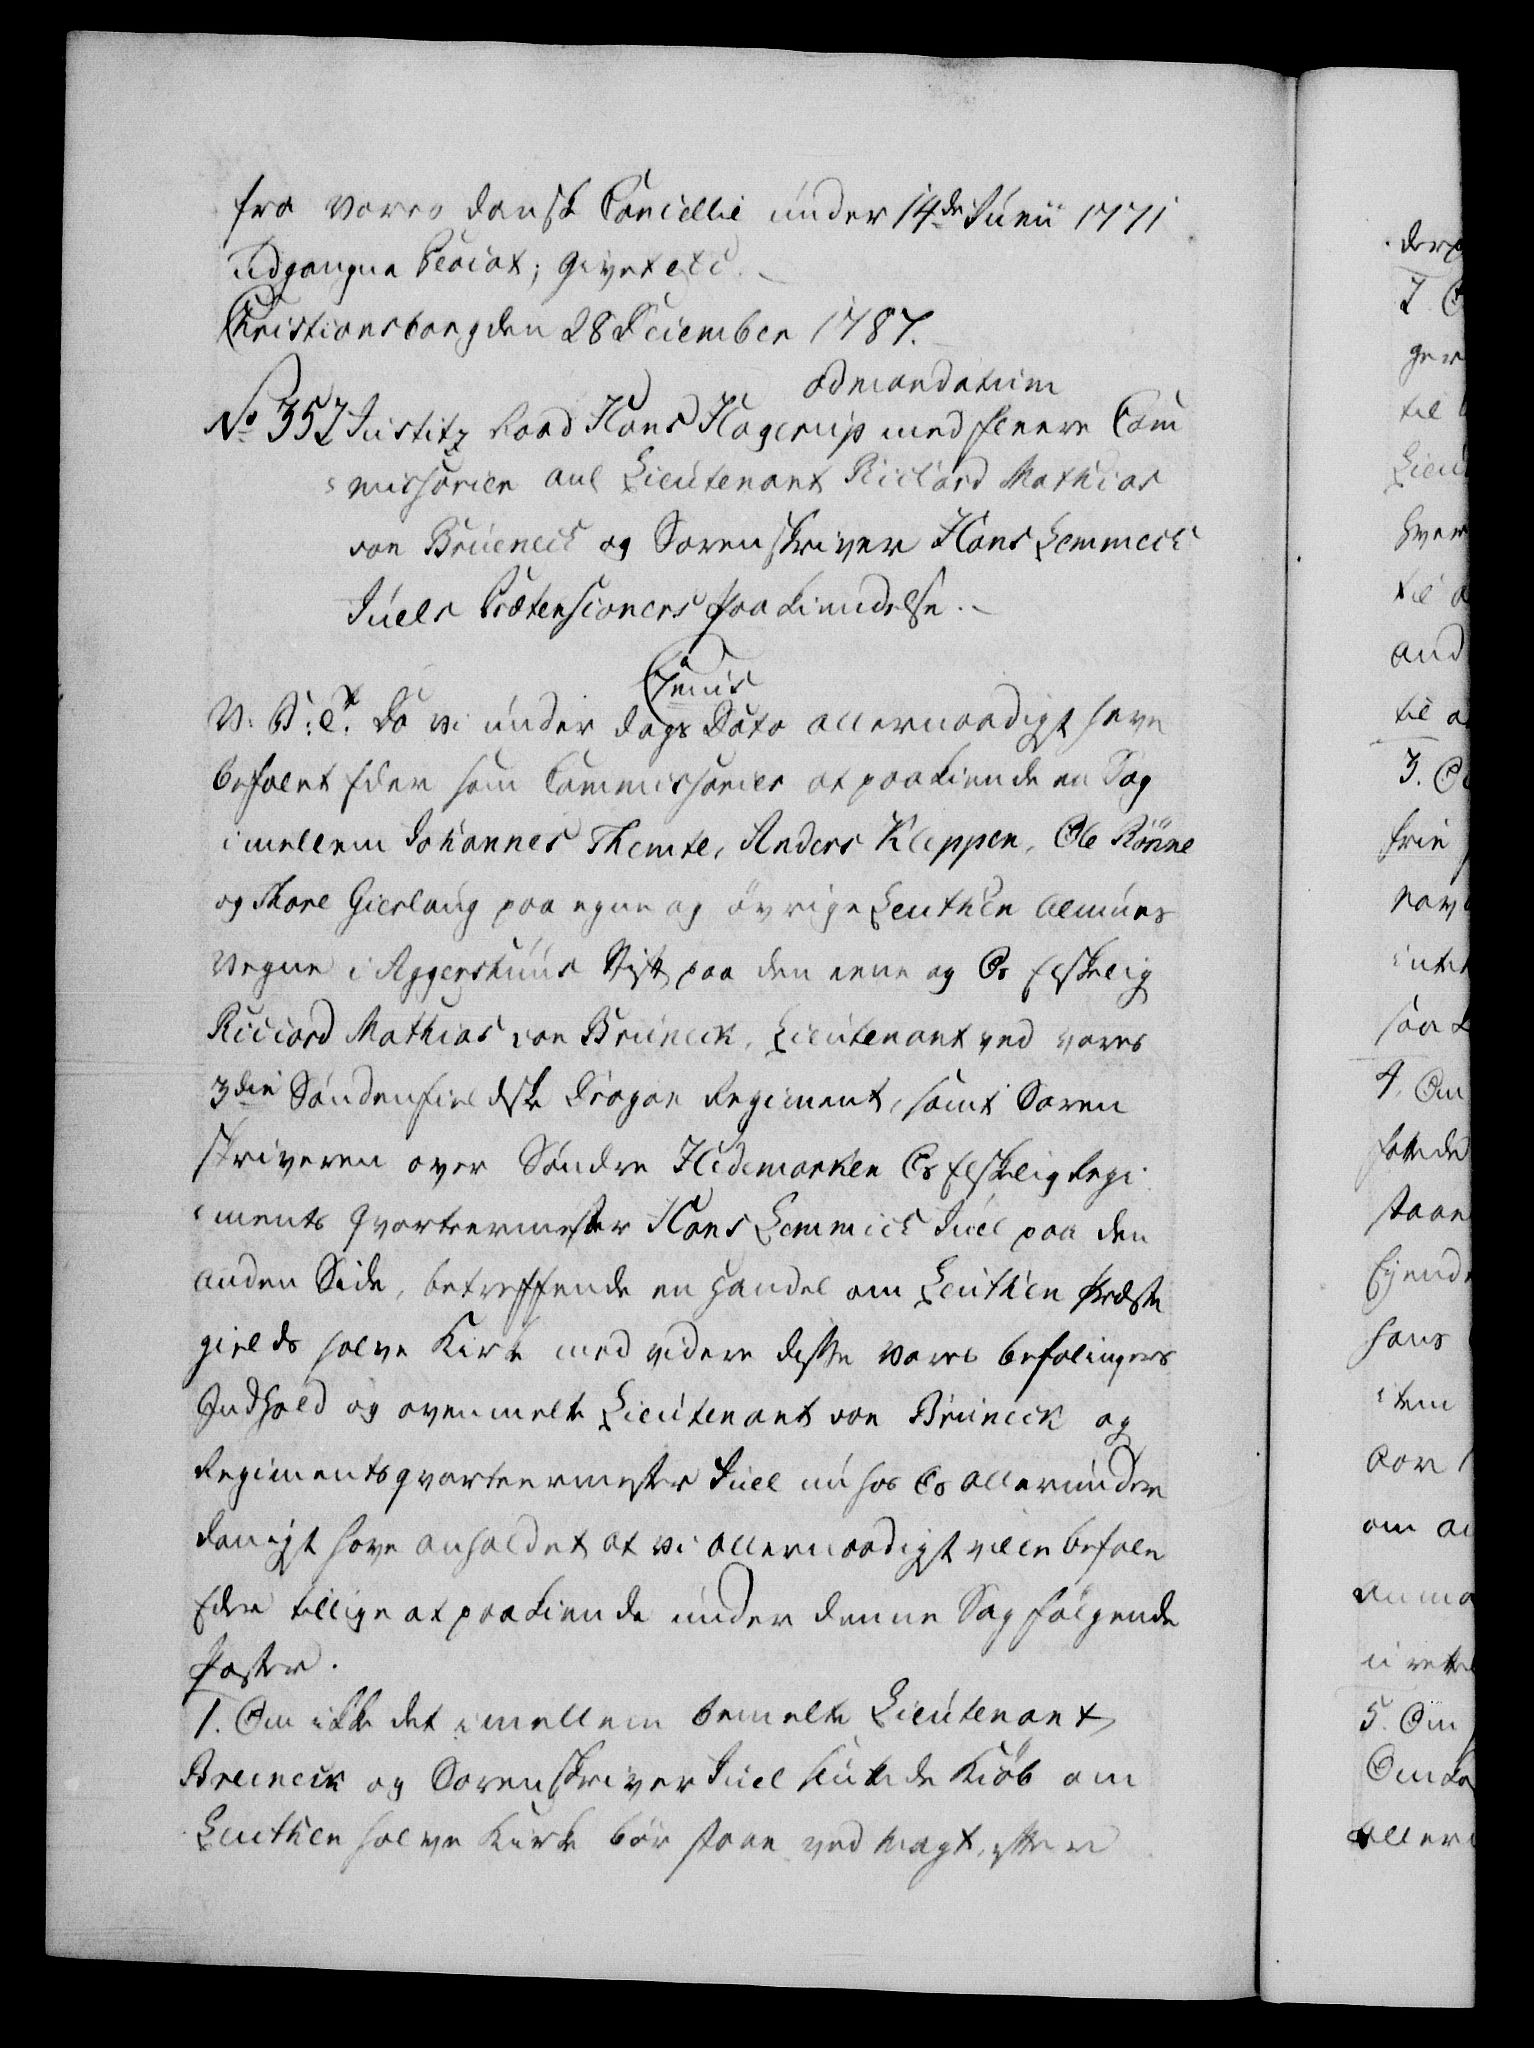 fra vores danske Cancellie under 14de Junii 1771
udgangne Placat; Givet etc.
Christiansborg den 28 December 1787.
ad mandatum
No 352 Justitz Raad Hans Hagerup med fleere Com
missarier anl Lieutenant Richard Mathias
von Brüeneck og Sorenskriver Hans Lemmich
Juels Prætensioners Paakiendelse.
Cenis
V. S. E. T. Da vi under Dags Dato allernaadigst have
befalet Eder som Commissarier at paakiende en Sag
imellem Johannes Themte, Anders Kleppen, Ole Rönne
og Thore Gierlaug paa egne og övrige Leuthen Almues
Vegne i Aggershuus Stift paa den eene og Os Elskelig
Riccard Mathias von Brüneck, Lieutenant ved vores
3die Söndenfieldske Dragon Regiment, samt Soren
skriveren over Söndre Hedemarken Os Elskelig Regi
ments Qvarteermester Hans Lemmich Juel paa den
anden Side, betreffende en Handel om Leuthen Præste
gields halve Kirke med videre disse vores Befalingers
Indhold og ovenmelte Lieutenant von Brüneck og
Regimentsqvarteermester Juel nu hos Os allerunder
danigst have anholdet at vi allernaadigst ville befale
Eder tillige at paakiende under denne Sag fölgende
Poster.
1. Om ikke det imellem bemelte Lieutenant
Brüneck og Sorenskriver Juel sluttede Kiöb om
Leuthen halve Kirke bör staae ved Magt, efter